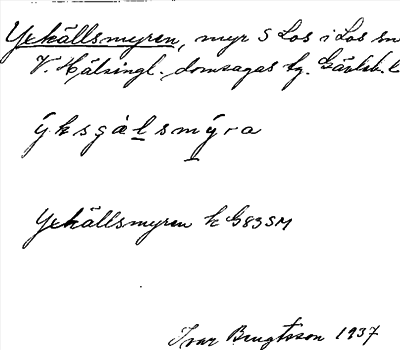 Yxkällsmyren, myr S Los i Los sn
V. Hälsingl. domsagas tg. Gävleb. l
Yxkällsmyren k G83SM
Ivar Bengtsson 1937